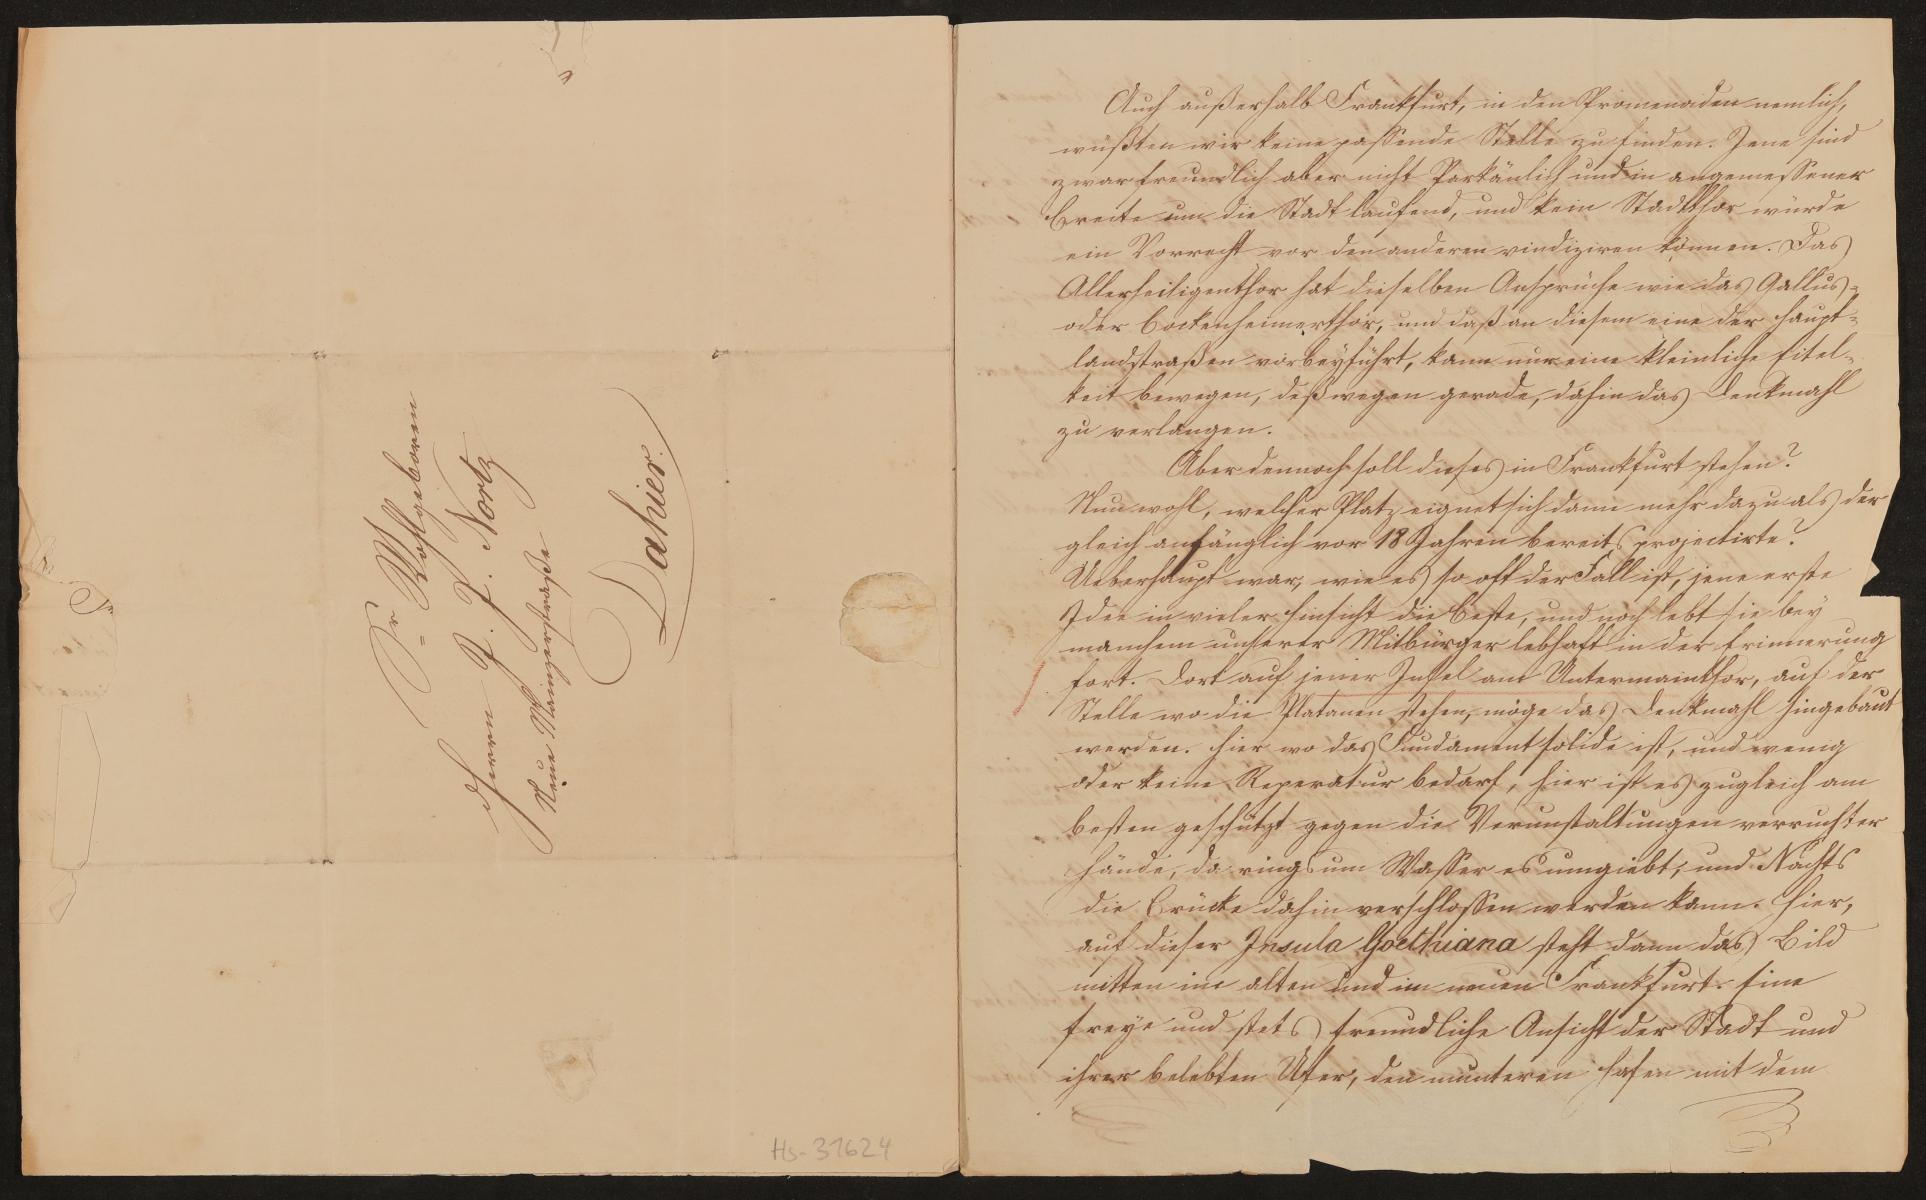 Sr Wohlgeboren
Herrn J. J. Nortz
Neue Mainzerstraße
Dahier.
Hs-31624
Auch außerhalb Frankfurt, in den Promenaden nemlich,
wüßten wir keine passende Stelle zu finden. Jene sind
zwar freundlich aber nicht Parkänlich und in angemessener
Breite um die Stadt laufend, und kein Stadtthor würde
ein Vorrecht vor den anderen vindiziren können. Das
Allerheiligenthor hat dieselben Ansprüche wie das Gallus-
oder Bockenheimerthor, und daß an diesem eine der Haupt-
landstraßen vorbeyführt, kann nur eine kleinliche Eitel-
keit bewegen, deßwegen gerade, dahin das Denkmahl
zu verlangen.
Aber dennoch soll dieses in Frankfurt stehen?
Nun wohl, welcher Platz eignet sich dann mehr dazu als der
gleich anfänglich vor 18 Jahren bereits projectirte?
Ueberhaupt war, wie es so oft der Fall ist, jene erste
Idee in vieler Hinsicht die Beste, und noch lebt sie bey
manchem unserer Mitbürger lebhaft in der Erinnerung
fort. Dort auf jener Insel am Untermainthor, auf der
Stelle wo die Platanen stehen, möge das Denkmahl hingebaut
werden. Hier wo das Fundament solide ist, und wenig
oder keine Reperatur bedarf, hier ist es zugleich am
besten geschützt gegen die Verunstaltungen verruchter
Hände, da rings um Wasser es umgiebt, und Nachts
die Brücke dahin verschlossen werden kann. Hier,
auf dieser Insula Goethiana steht dann das Bild
mitten im alten und im neuen Frankfurt. Eine
freye und stets freundliche Ansicht der Stadt und
ihrer belebten Ufer, den munteren Hafen mit dem